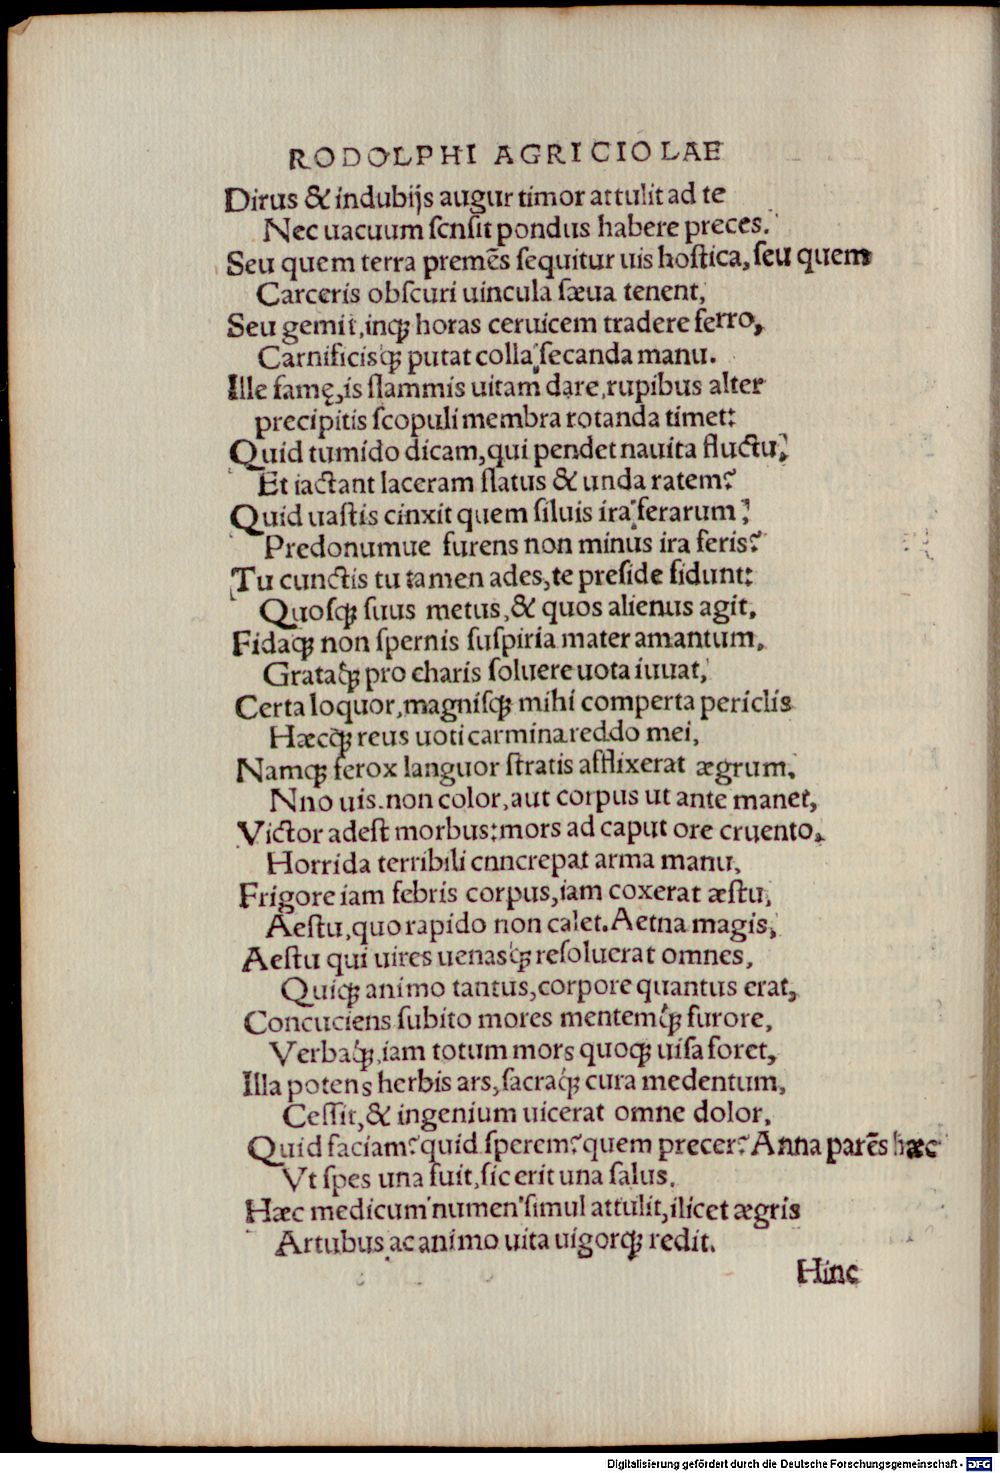 RODOLPHI AGRICIOLAE
Dirus & indubijs augur timor attulit ad te
Nec uacuum ſenſit pondus habere preces.
Seu quem terra premẽs ſequitur uis hoſtica, ſeu quem
Carceris obſcuri uincula ſæua tenent,
Seu gemit, inqꝫ horas ceruicem tradere ferro,
Carnificisqꝫ putat colla ſecanda manu.
Ille famę, is flammis uitam dare, rupibus alter
precipitis ſcopuli membra rotanda timet:
Quid tumido dicam, qui pendet nauita fluctu?
Et iactant laceram flatus & unda ratem?
Quid uaſtis cinxit quem ſiluis ira ferarum?
Predonumue furens non minus ira feris?
Tu cunctis tu tamen ades, te preſide fidunt:
Quoſqꝫ ſuus metus, & quos alienus agit.
Fidaqꝫ non ſpernis ſuſpiria mater amantum,
Grataqꝫ pro charis ſoluere uota iuuat,
Certa loquor, magniſqꝫ mihi comperta periclis
Hæcqꝫ reus uoti carmina reddo mei,
Namqꝫ ferox languor ſtratis afflixerat ægrum.
Nno uis. non color, aut corpus ut ante manet,
Victor adeſt morbus: mors ad caput ore cruento,
Horrida terribili cnncrepat arma manu,
Frigore iam febris corpus, iam coxerat æſtu,
Aeſtu, quo rapido non calet. Aetna magis,
Aeſtu qui uires uenasqꝫ reſoluerat omnes,
Quiqꝫ animo tantus, corpore quantus erat,
Concuciens ſubito mores mentemqꝫ furore,
Verbaqꝫ, iam totum mors quoqꝫ uiſa foret,
Illa potens herbis ars, ſacraqꝫ cura medentum,
Ceſſit, & ingenium uicerat omne dolor,
Quid faciam? quid ſperem? quem precer? Anna parẽs hæc
Vt ſpes una fuit, ſic erit una ſalus.
Hæc medicum numen ſimul attulit, ilicet ægris
Artubus ac animo uita uigorqꝫ redit.
Hinc
Digitalisierung gefördert durch die Deutsche Forschungsgemeinschaft - DFG